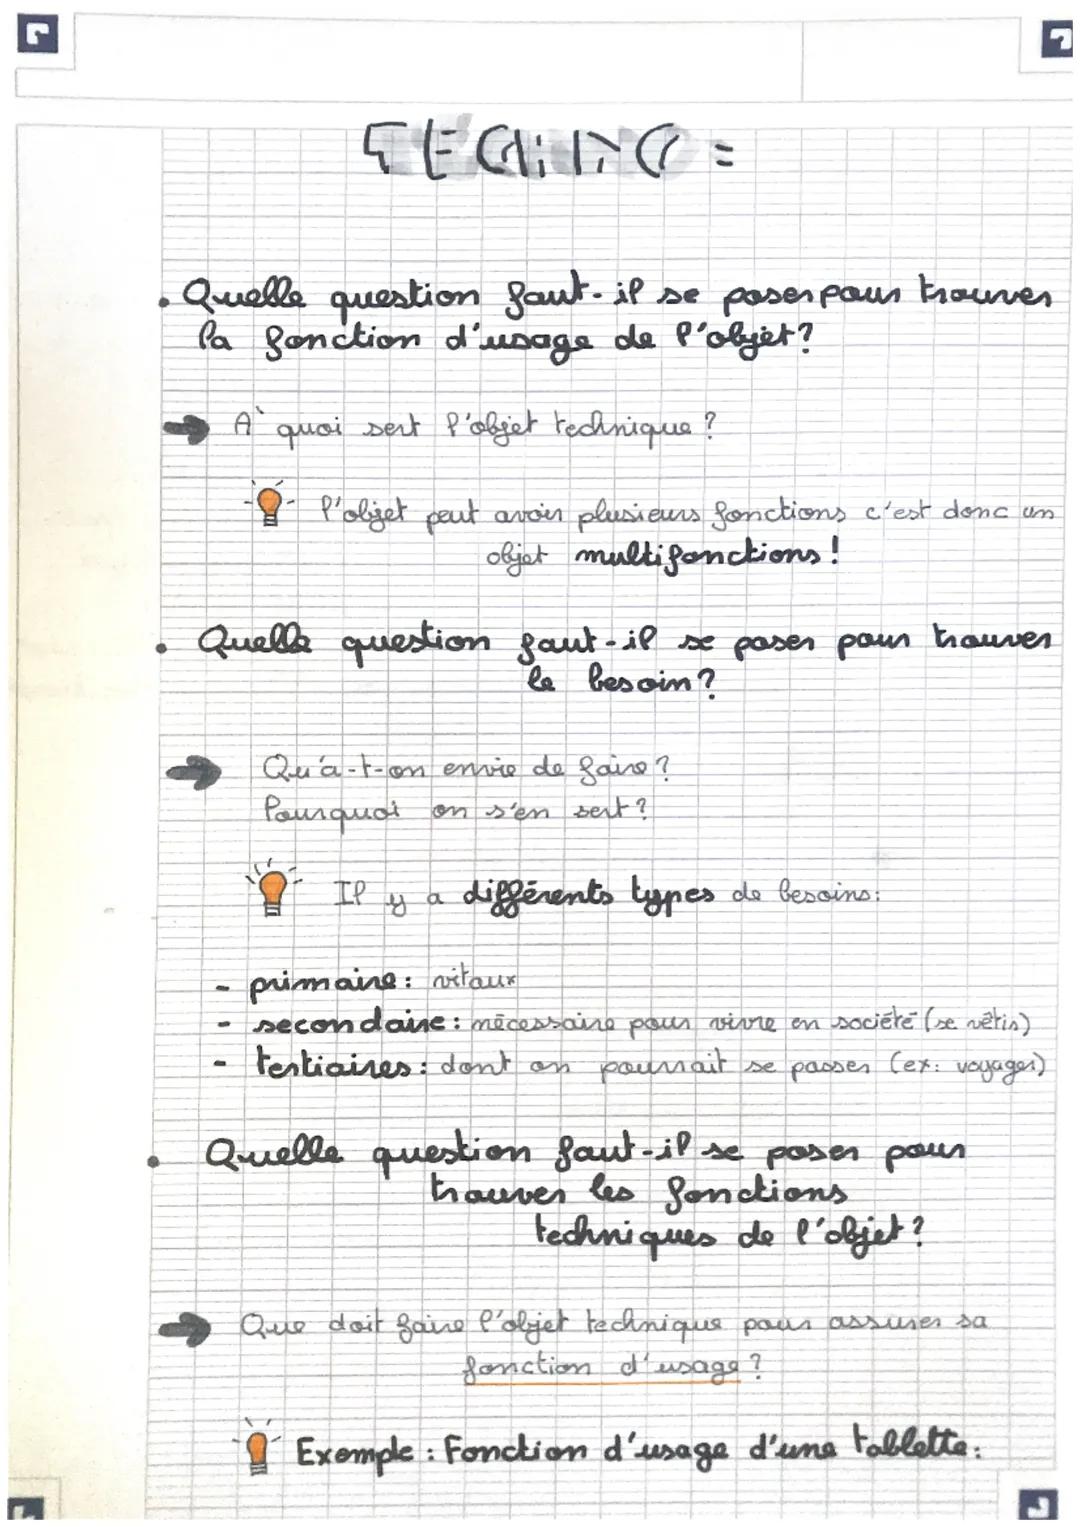 TECHNO =
• Quelle question faut-il se poser pour trouver
la fonction d'usage de l'objet ?
→ A quoi sert l'objet technique ?
l'objet peut avoir plusieurs fonctions c'est donc un
objet multifonctions !
• Quelle question faut-il se poser pour trouver
le besoin ?
→ Qu'a-t-on envie de faire ?
Pourquoi on s'en sert ?
Il y a différents types de besoins :
- primaire : vitaux
- secondaire : nécessaire pour vivre en société (se vêtir)
- tertiaires : dont on pourrait se passer (ex : voyager)
• Quelle question faut-il se poser pour
trouver les fonctions
techniques de l'objet ?
→ Que doit faire l'objet technique pour assurer sa
fonction d'usage ?
Exemple : Fonction d'usage d'une tablette :